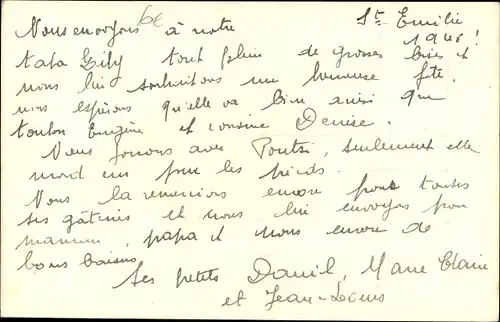 St Emilie
1948!
Nous envoyons à notre
tata Lily tout plein de grosses bises et
nous lui souhaitons une heureuse fête,
nous espérons qu'elle va bien ainsi que
tonton Eugène et cousine Denise.
Nous jouons avec seulement elle
mord un peu les pieds.
Nous la remercions encore pour toutes
ses gâteries et nous lui envoyons pour
maman, papa et nous encore de
bons baisers
Ses petits Daniel, Marie Claire
et Jean-Louis